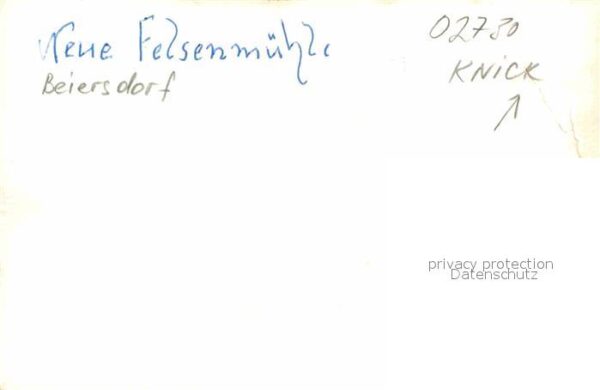 Neue Felsenmühle
Beiersdorf
02730
KNICK
↗
privacy protection
Datenschutz